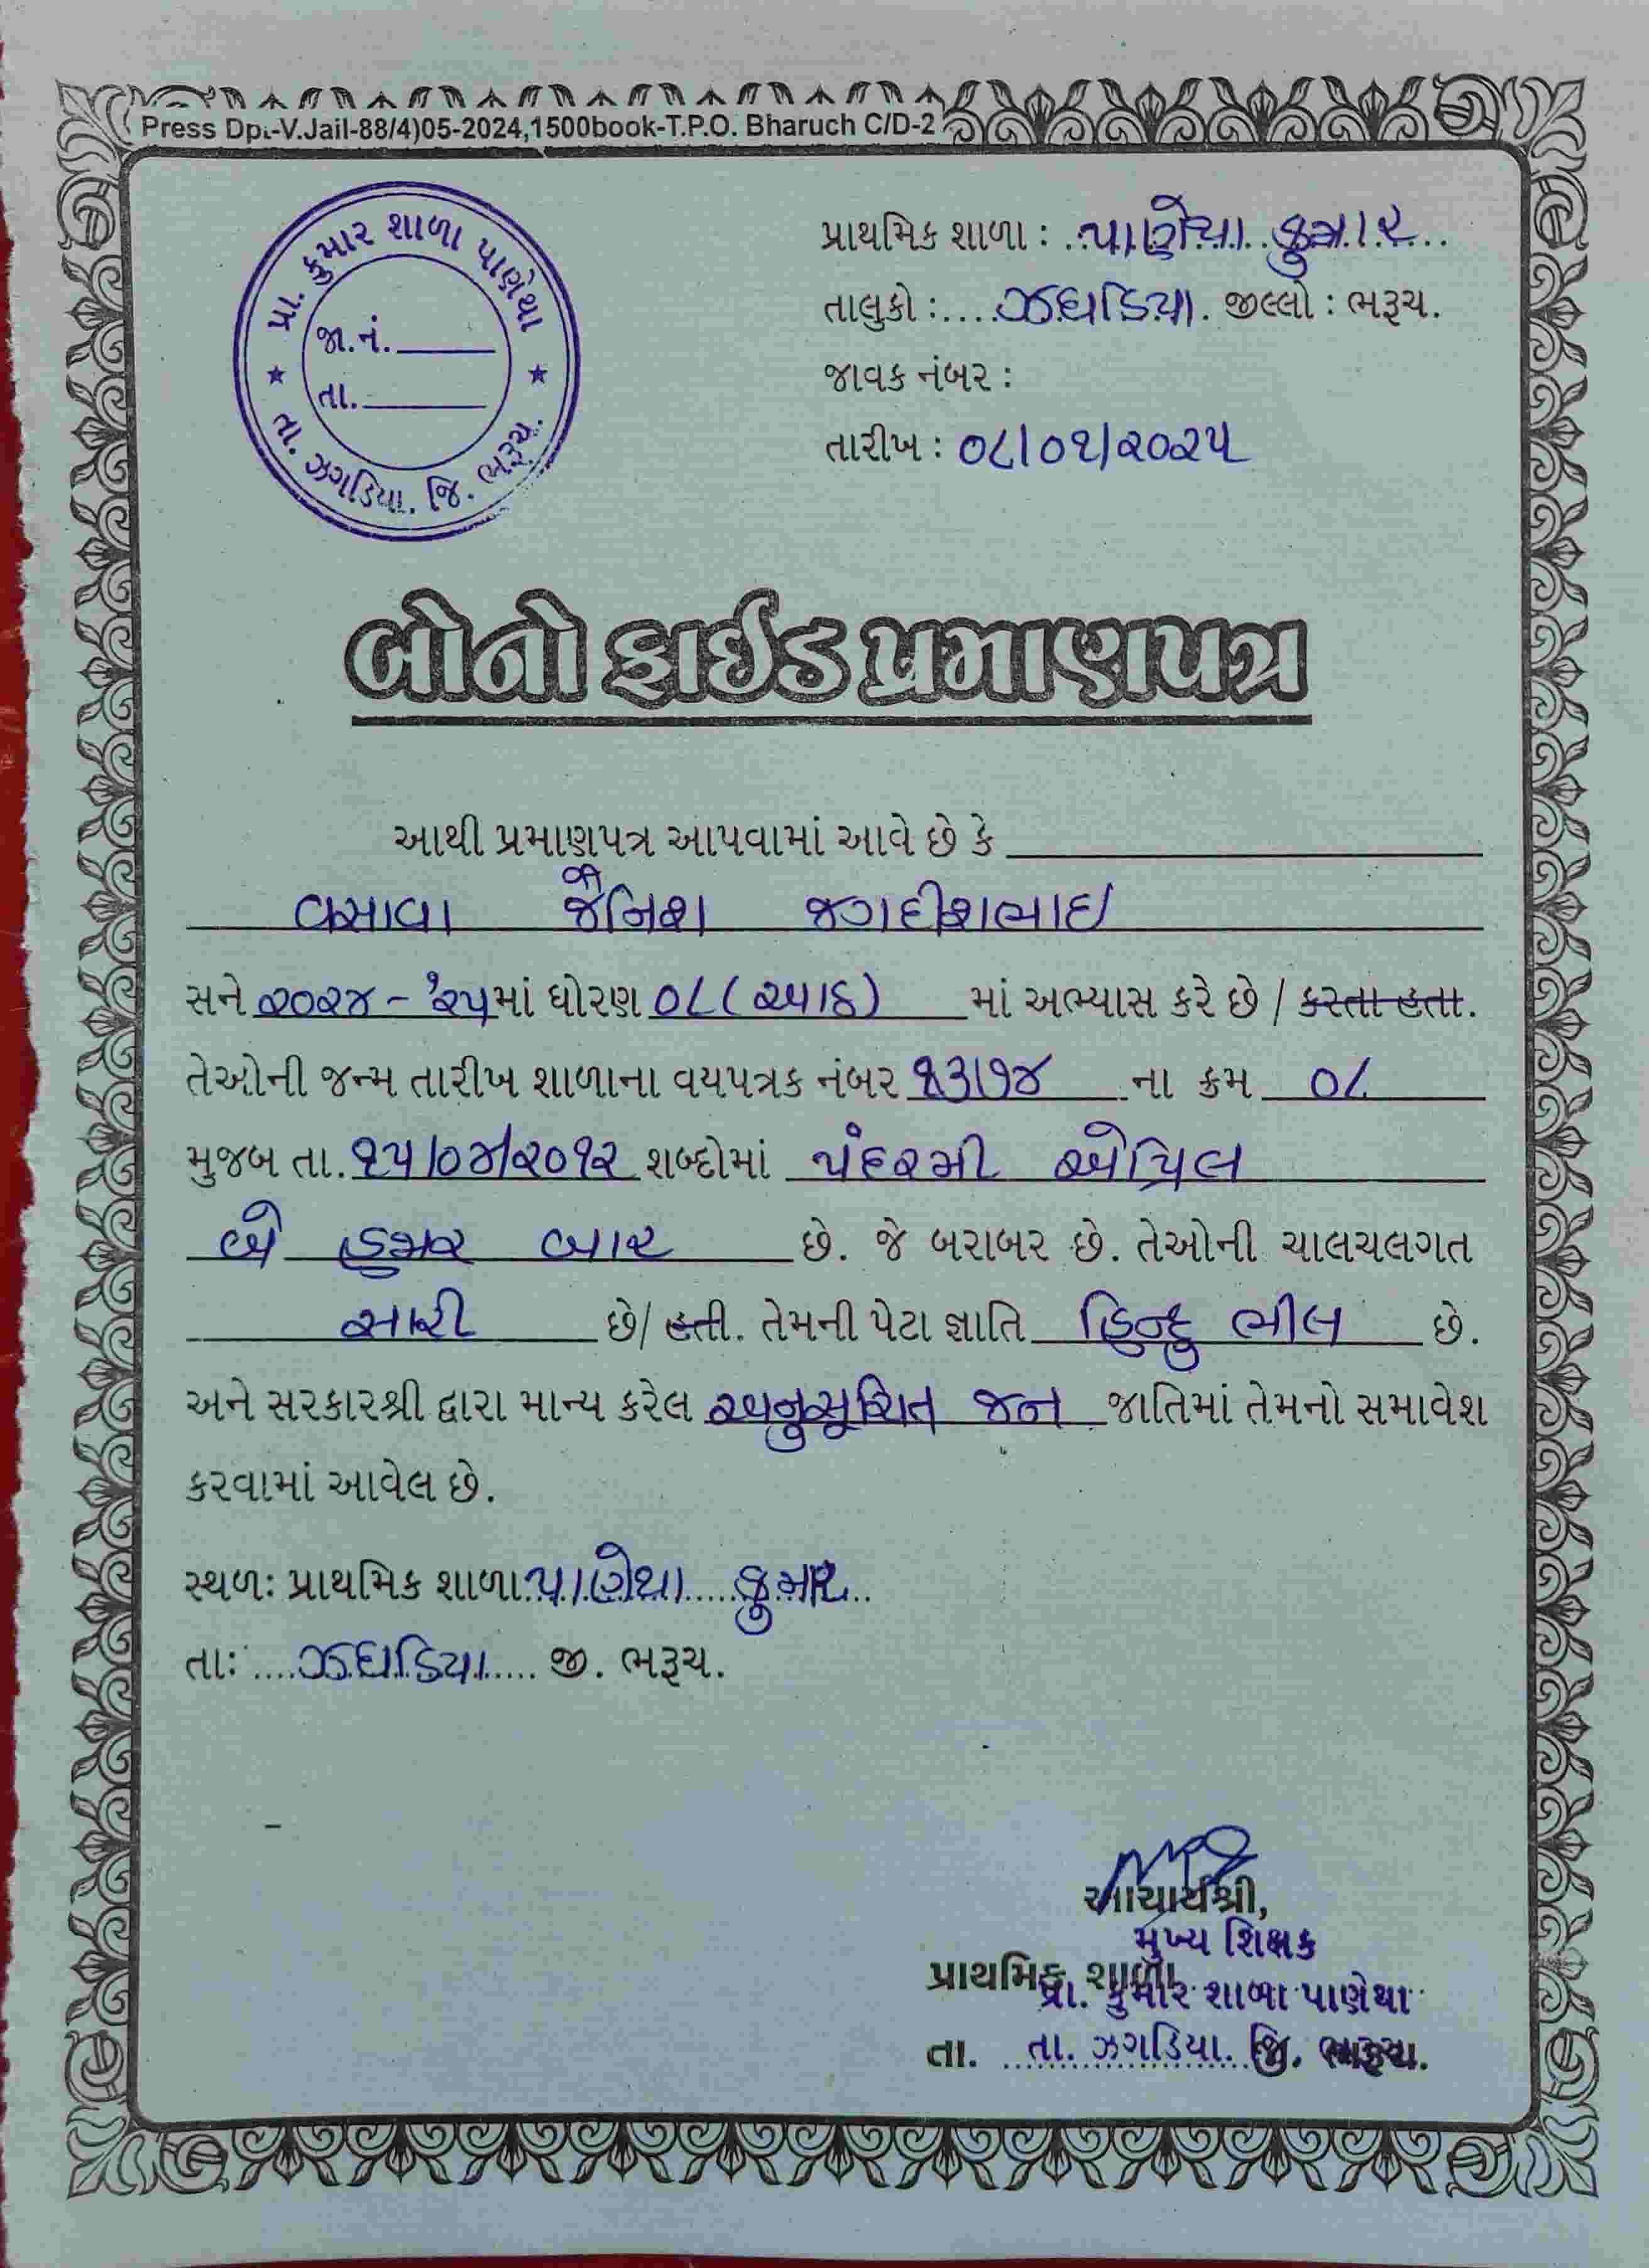 Press Dpt.-V.Jail-88/4)05-2024,1500book-T.P.O. Bharuch C/D-2
પ્રા. કુમાર શાળા પાણેથા
જા.નં.
તા.
તા. ઝગડિયા. જિ. ભરૂચ.
પ્રાથમિક શાળા : પાણેથા કુમાર
તાલુકો : ઝઘડિયા. જીલ્લો : ભરૂચ.
જાવક નંબર :
તારીખ : ૦૮/૦૧/૨૦૨૫
બોનોફાઈડ પ્રમાણપત્ર
આથી પ્રમાણપત્ર આપવામાં આવે છે કે
વસાવા જૈનિશ જગદીશભાઇ
સને ૨૦૨૪-'૨૫માં ધોરણ ૦૮ (આઠ) માં અભ્યાસ કરે છે / કરતા હતા.
તેઓની જન્મ તારીખ શાળાના વયપત્રક નંબર ૧૩/૭૪ ના ક્રમ ૦૮
મુજબ તા. ૧૫/૦૪/૨૦૧૨ શબ્દોમાં પંદરમી એપ્રિલ
બે હજાર બાર છે. જે બરાબર છે. તેઓની ચાલચલગત
સારી છે/ હતી. તેમની પેટા જ્ઞાતિ હિન્દુ ભીલ છે.
અને સરકારશ્રી દ્વારા માન્ય કરેલ અનુસૂચિત જન જાતિમાં તેમનો સમાવેશ
કરવામાં આવેલ છે.
સ્થળ: પ્રાથમિક શાળા પાણેથા કુમાર
તા: ઝઘડિયા જી. ભરૂચ.
આચાર્યશ્રી,
મુખ્ય શિક્ષક
પ્રાથમિક શાળા
પ્રા. કુમાર શાળા પાણેથા
તા. તા. ઝગડિયા. જિ. ભરૂચ.